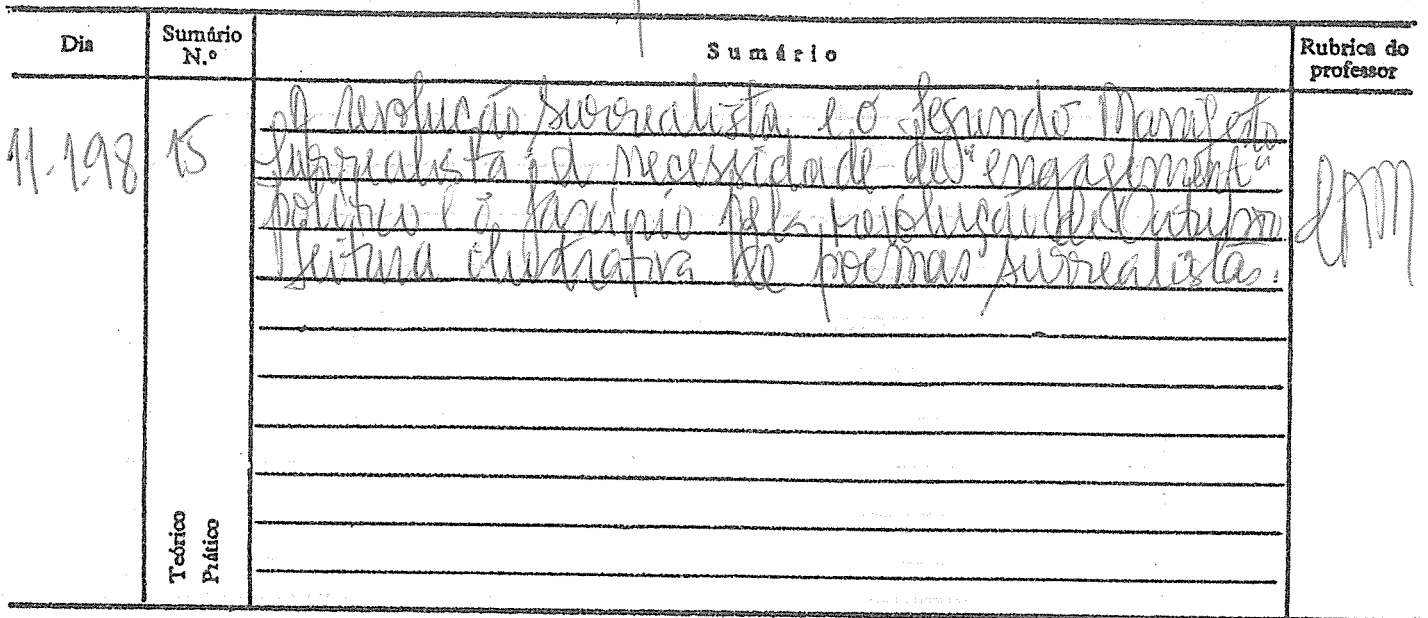 Dia
Sumário N.º
Sumário
Rubrica do professor
11.1.98
15
A revolução surrealista e o segundo Manifesto
surrealista: a necessidade de "engagement"
político e o fascínio pela revolução de Outubro
Leitura ilustrativa de poemas surrealistas.
Teórico
Prático